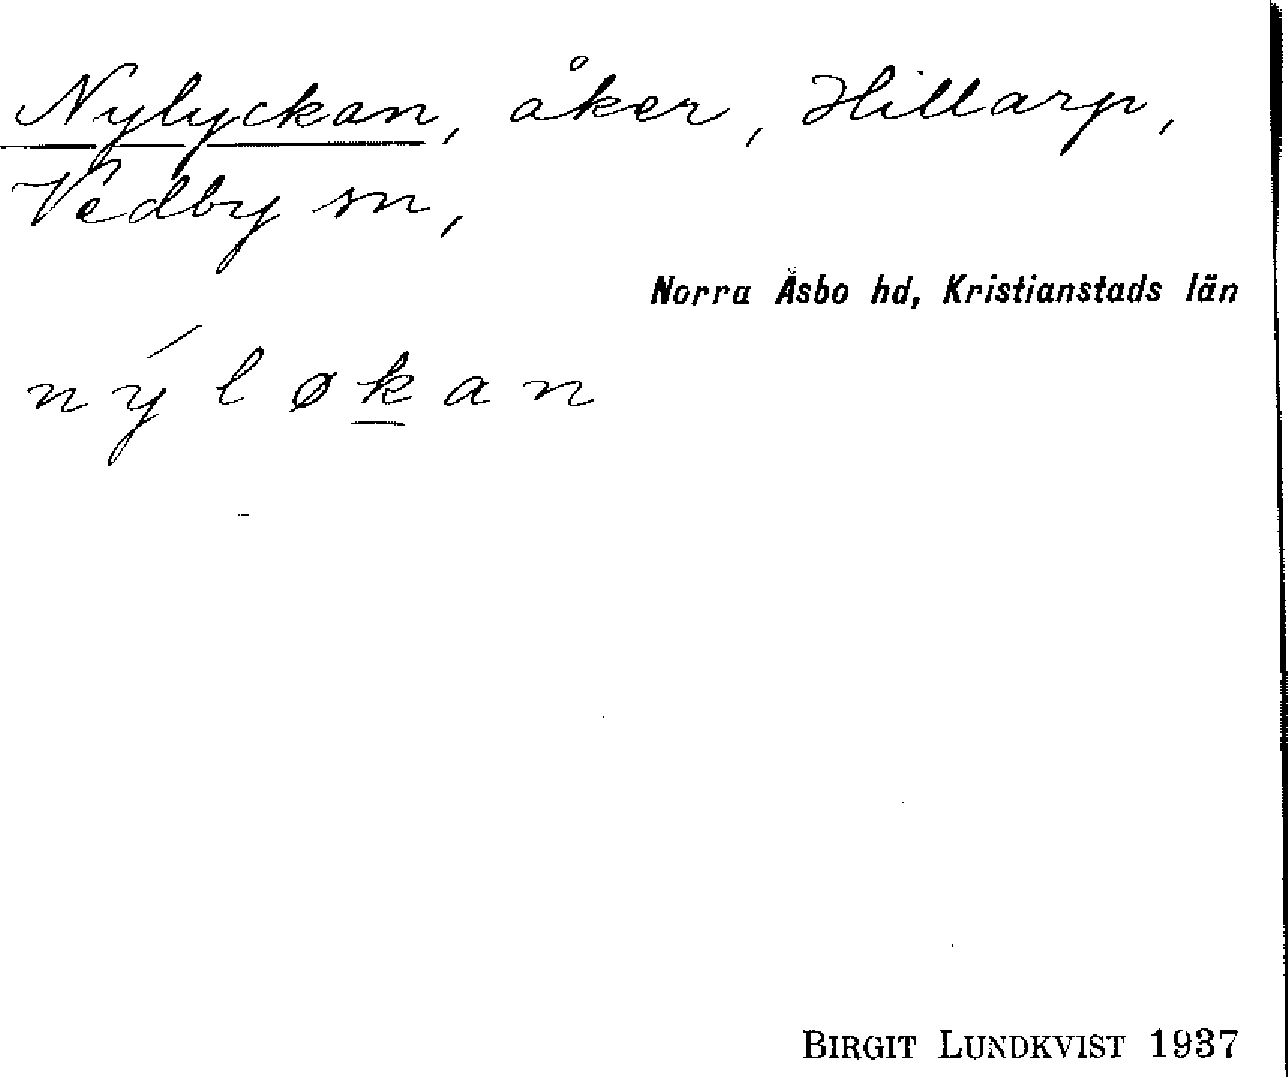 Nylyckan, åker, Hillarp,
Vedby sn,
Norra Åsbo hd, Kristianstads län
nýløkan
BIRGIT LUNDKVIST 1937